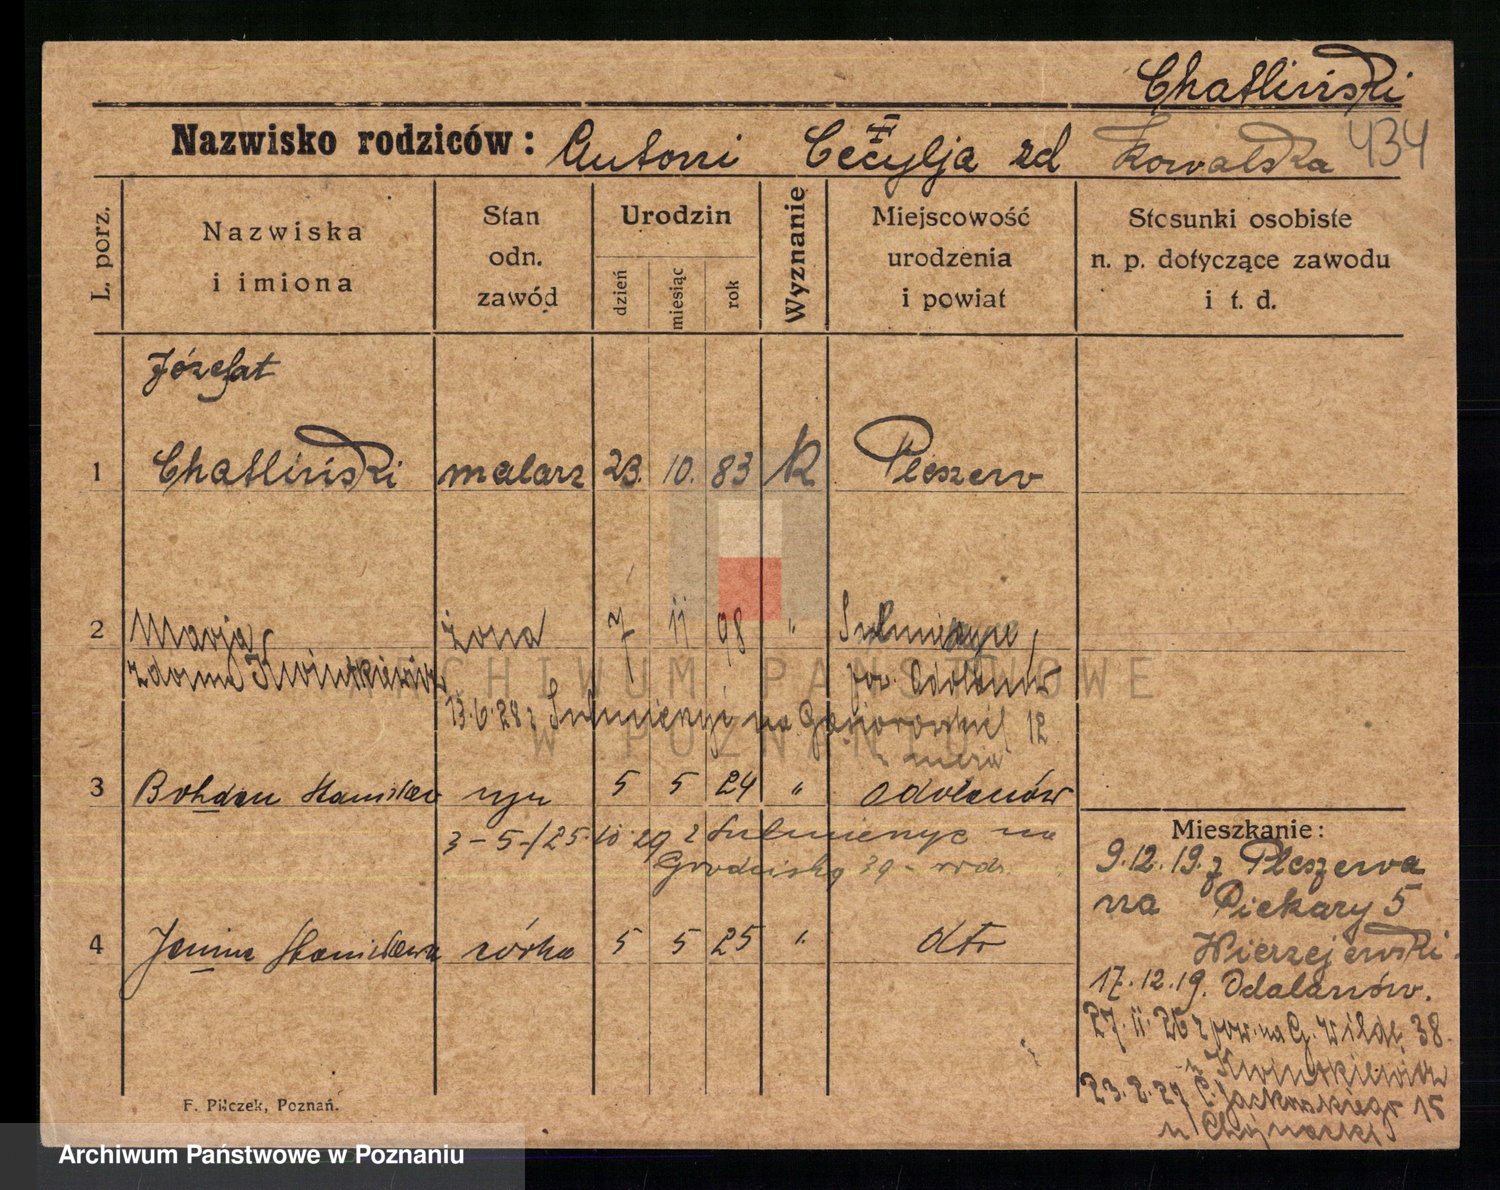 Chatliński
Nazwisko rodziców: Antoni Cecylja zd Kowalska 434
L. porz.
Nazwiska
i imiona
Stan
odn.
zawód
Urodzin
dzień
miesiąc
rok
Wyznanie
Miejscowość
urodzenia
i powiat
Stosunki osobiste
n. p. dotyczące zawodu
i t. d.
Józefat
1 Chatliński malarz 23. 10. 83 K Pleszew
2 Marja żona 7 11 98 " Sulmierzyce,
z domu Kwintkiewicz pow. Odolanów
13.6.28 z Sulmierzyc na Gąsiorowskich 12
3 Bohdan Stanisław syn 5 5 24 " Odolanów
3-5-/25.10.29 z Sulmierzyc na
Grodziską 39
4 Janina Stanisława córka 5 5 25 " dto
Mieszkanie:
9.12.19. z Pleszewa
na Piekary 5
Wierzejewski.
17.12.19. Odalanów.
27.11.26 z pow. na G. Wildę 38.
u Kwintkiewicz
23.2.27 Jackowskiego 15
F. Pilczek, Poznań.
ARCHIWUM PAŃSTWOWE
W POZNANIU
Archiwum Państwowe w Poznaniu